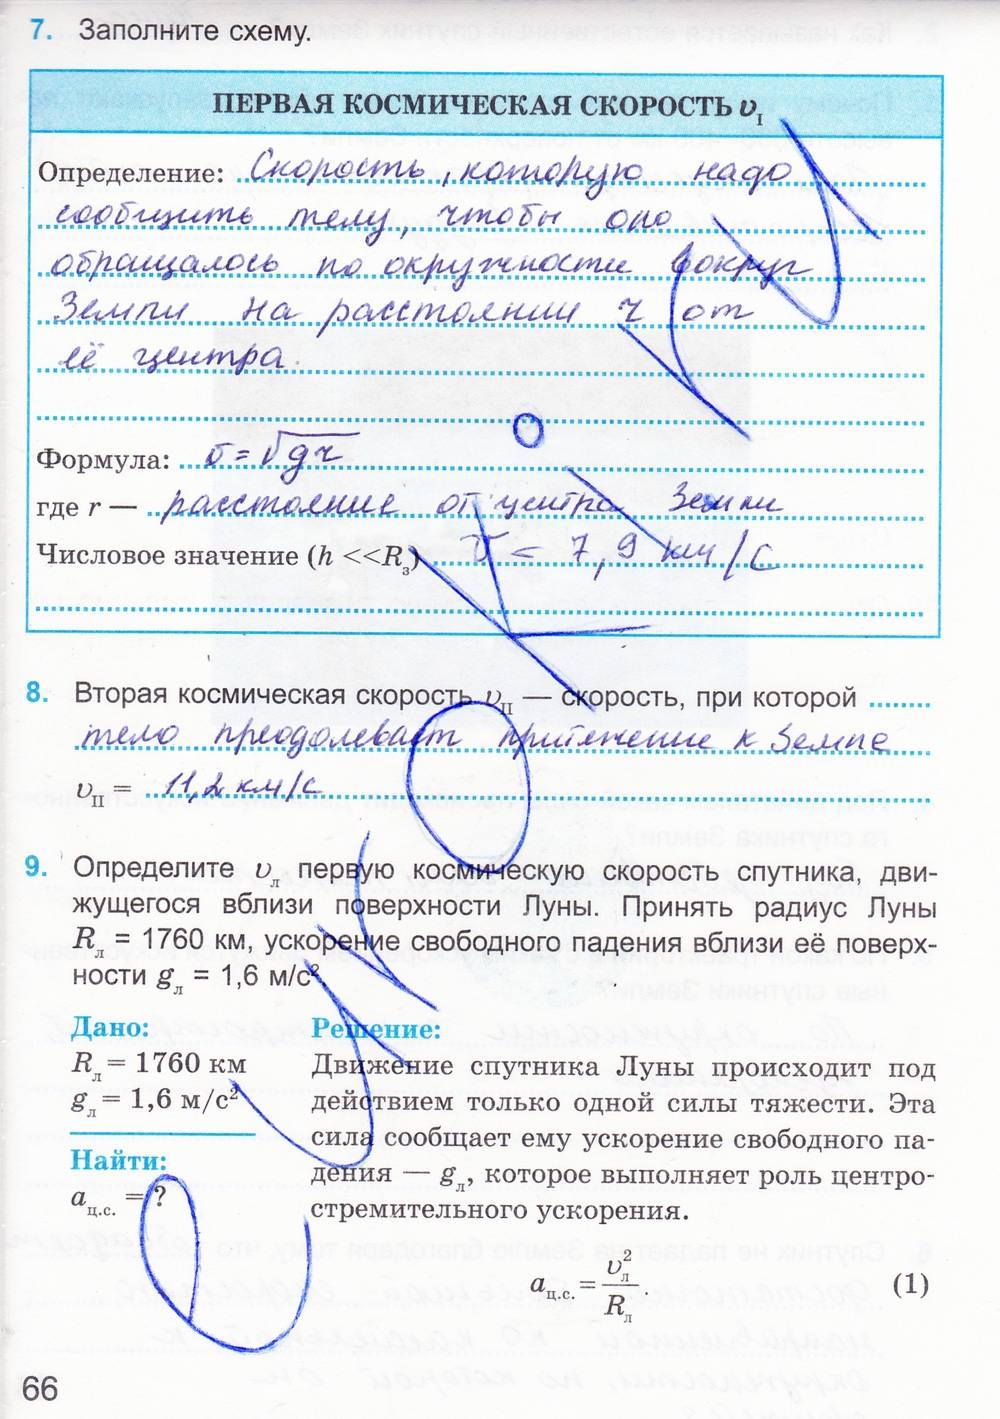 7. Заполните схему.
ПЕРВАЯ КОСМИЧЕСКАЯ СКОРОСТЬ υI
Определение: Скорость, которую надо
сообщить телу, чтобы оно
обращалось по окружности вокруг
Земли на расстоянии r от
её центра.
Формула: υ = √gr
где r — расстояние от центра Земли
Числовое значение (h <<Rз) υ = 7,9 км/с
8. Вторая космическая скорость υII — скорость, при которой
тело преодолевает притяжение к Земле
υII = 11,2 км/с
9. Определите υл первую космическую скорость спутника, дви-
жущегося вблизи поверхности Луны. Принять радиус Луны
Rл = 1760 км, ускорение свободного падения вблизи её поверх-
ности gл = 1,6 м/с²
Дано:
Rл = 1760 км
gл = 1,6 м/с²
Найти:
aц.с. = ?
Решение:
Движение спутника Луны происходит под
действием только одной силы тяжести. Эта
сила сообщает ему ускорение свободного па-
дения — gл, которое выполняет роль центро-
стремительного ускорения.
aц.с. = υл²/Rл. (1)
66